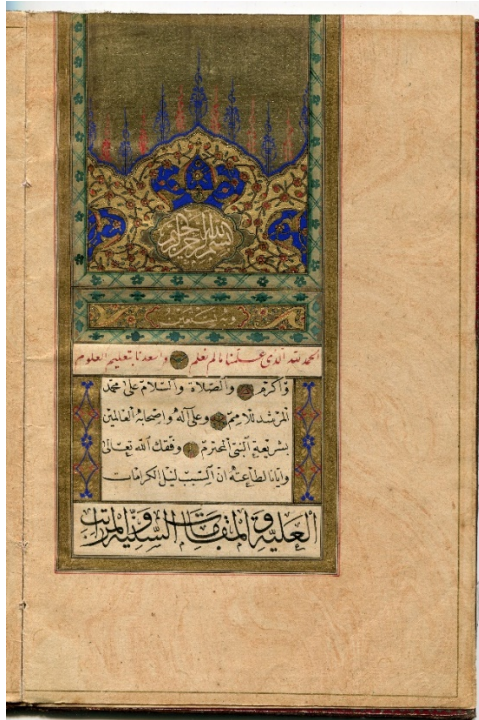 بسم الله الرحمن الرحيم
وبه نستعين
الحمد لله الذى علمنا مالم نعلم واسعدنا بتعليم العلوم
واكرم والصلاة والسلام على محمد
المرشد للامم وعلى آله واصحابه العالمين
بشريعة النبى المحترم وفقك الله تعالى
وايانا لطاعته ان السبب لنيل الكرامات
العلية والمقامات السنية والمراتب